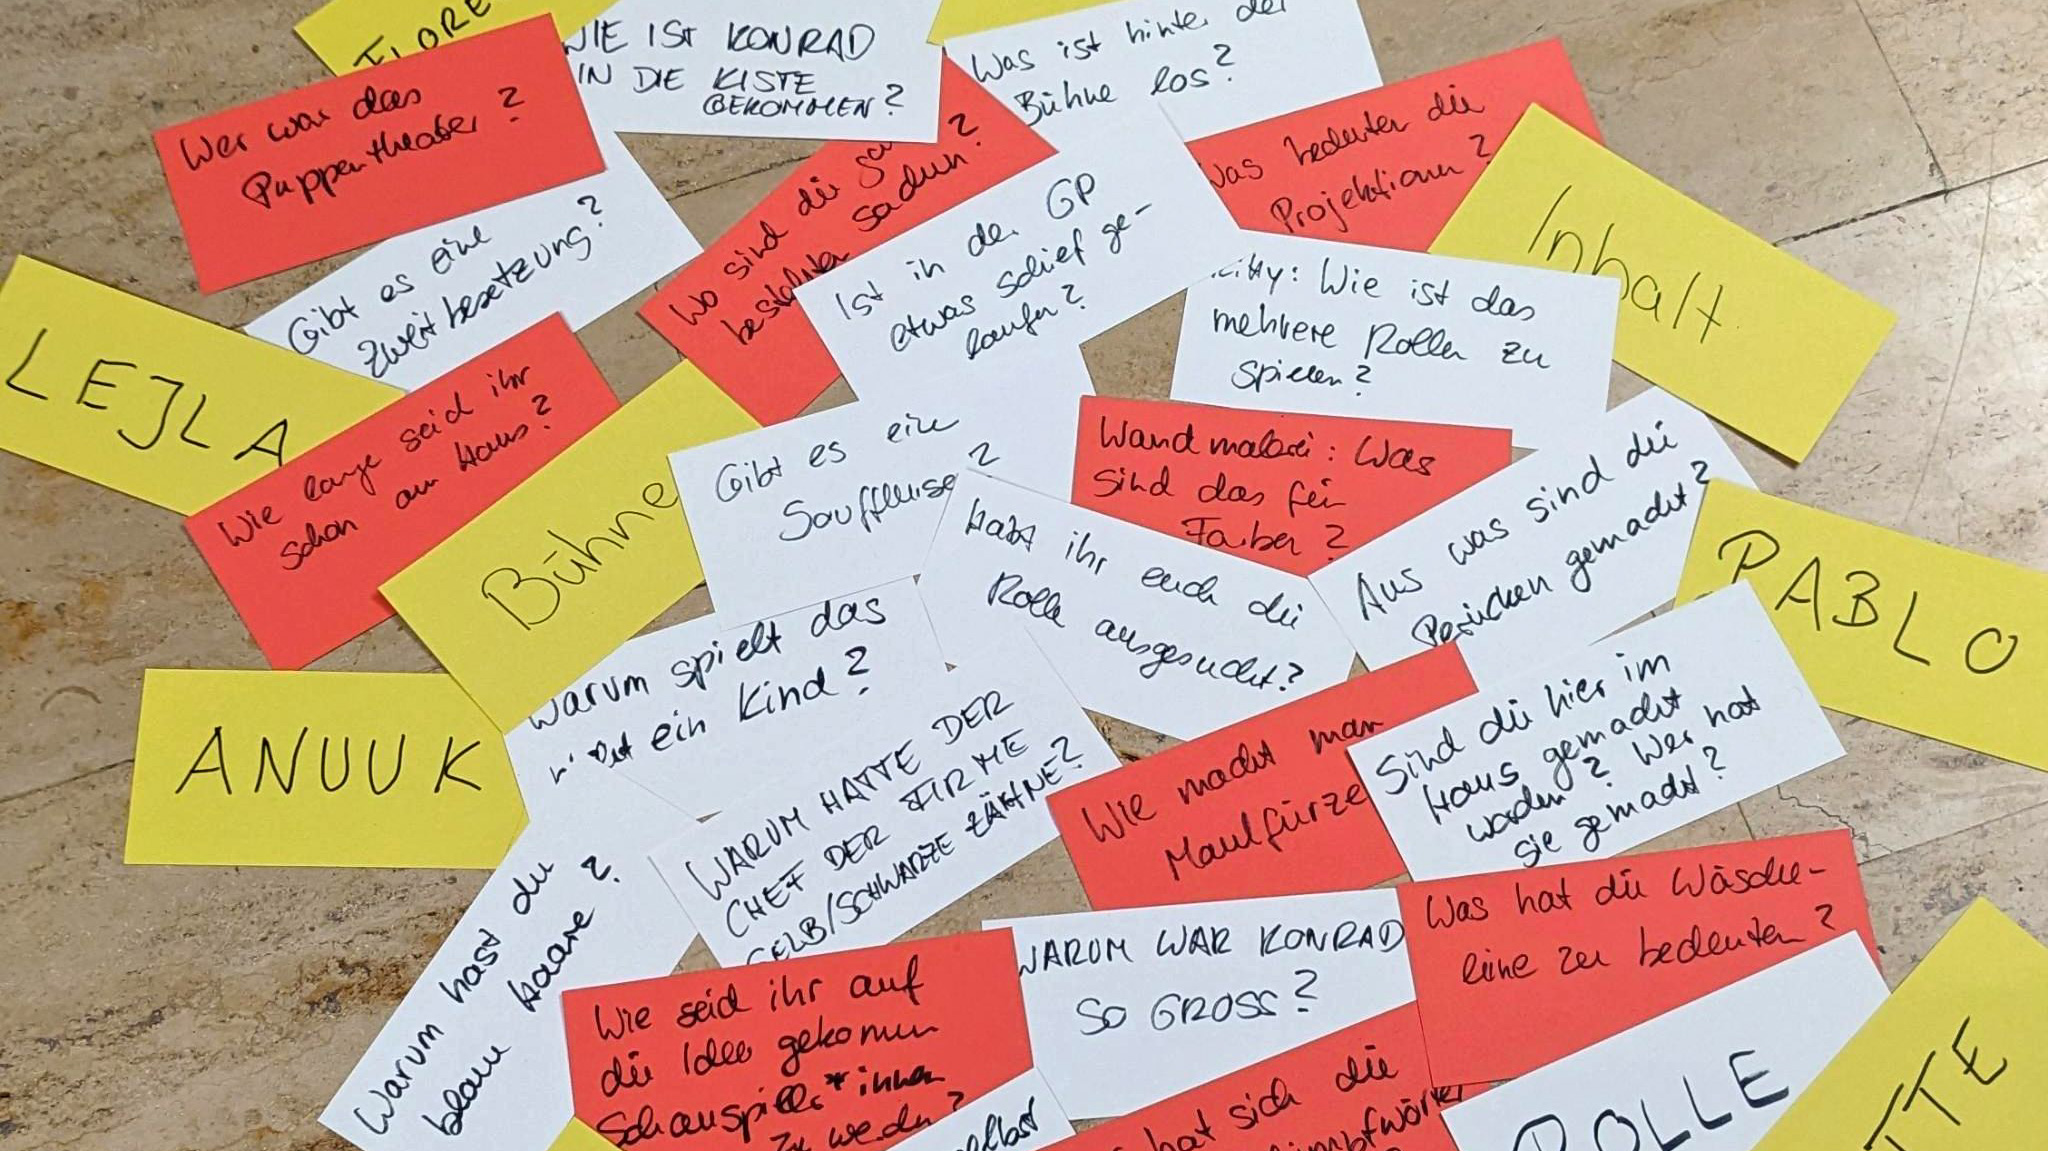 WIE IST KONRAD
IN DIE KISTE
GEKOMMEN?
Was ist hinter der
Bühne los?
Wer war das
Puppentheater?
Was bedeuten die
Projektionen?
Inhalt
Gibt es eine
Zweitbesetzung?
Wo sind die
bestellten Sachen?
Ist in der GP
etwas schief ge-
laufen?
Wie ist das
mehrere Rollen zu
spielen?
LEJLA
Wie lange seid ihr
schon am Haus?
Bühne
Gibt es eine
Souffleuse?
Wandmalerei: Was
sind das für
Farben?
Aus was sind die
Perücken gemacht?
PABLO
Habt ihr euch die
Rolle ausgesucht?
ANUUK
Warum spielt das
nicht ein Kind?
WARUM HATTE DER
CHEF DER FIRME
GELB/SCHWARZE ZÄHNE?
Wie macht man
Maulfürze
Sind die hier im
Haus gemacht
worden? Wer hat
sie gemacht?
Was hat die Wäsche-
leine zu bedeuten?
Warum hast du
blaue Haare?
Wie seid ihr auf
die Idee gekommen
Schauspieler*innen
zu werden?
WARUM WAR KONRAD
SO GROSS?
selbst
hat sich die
ROLLE
TTE